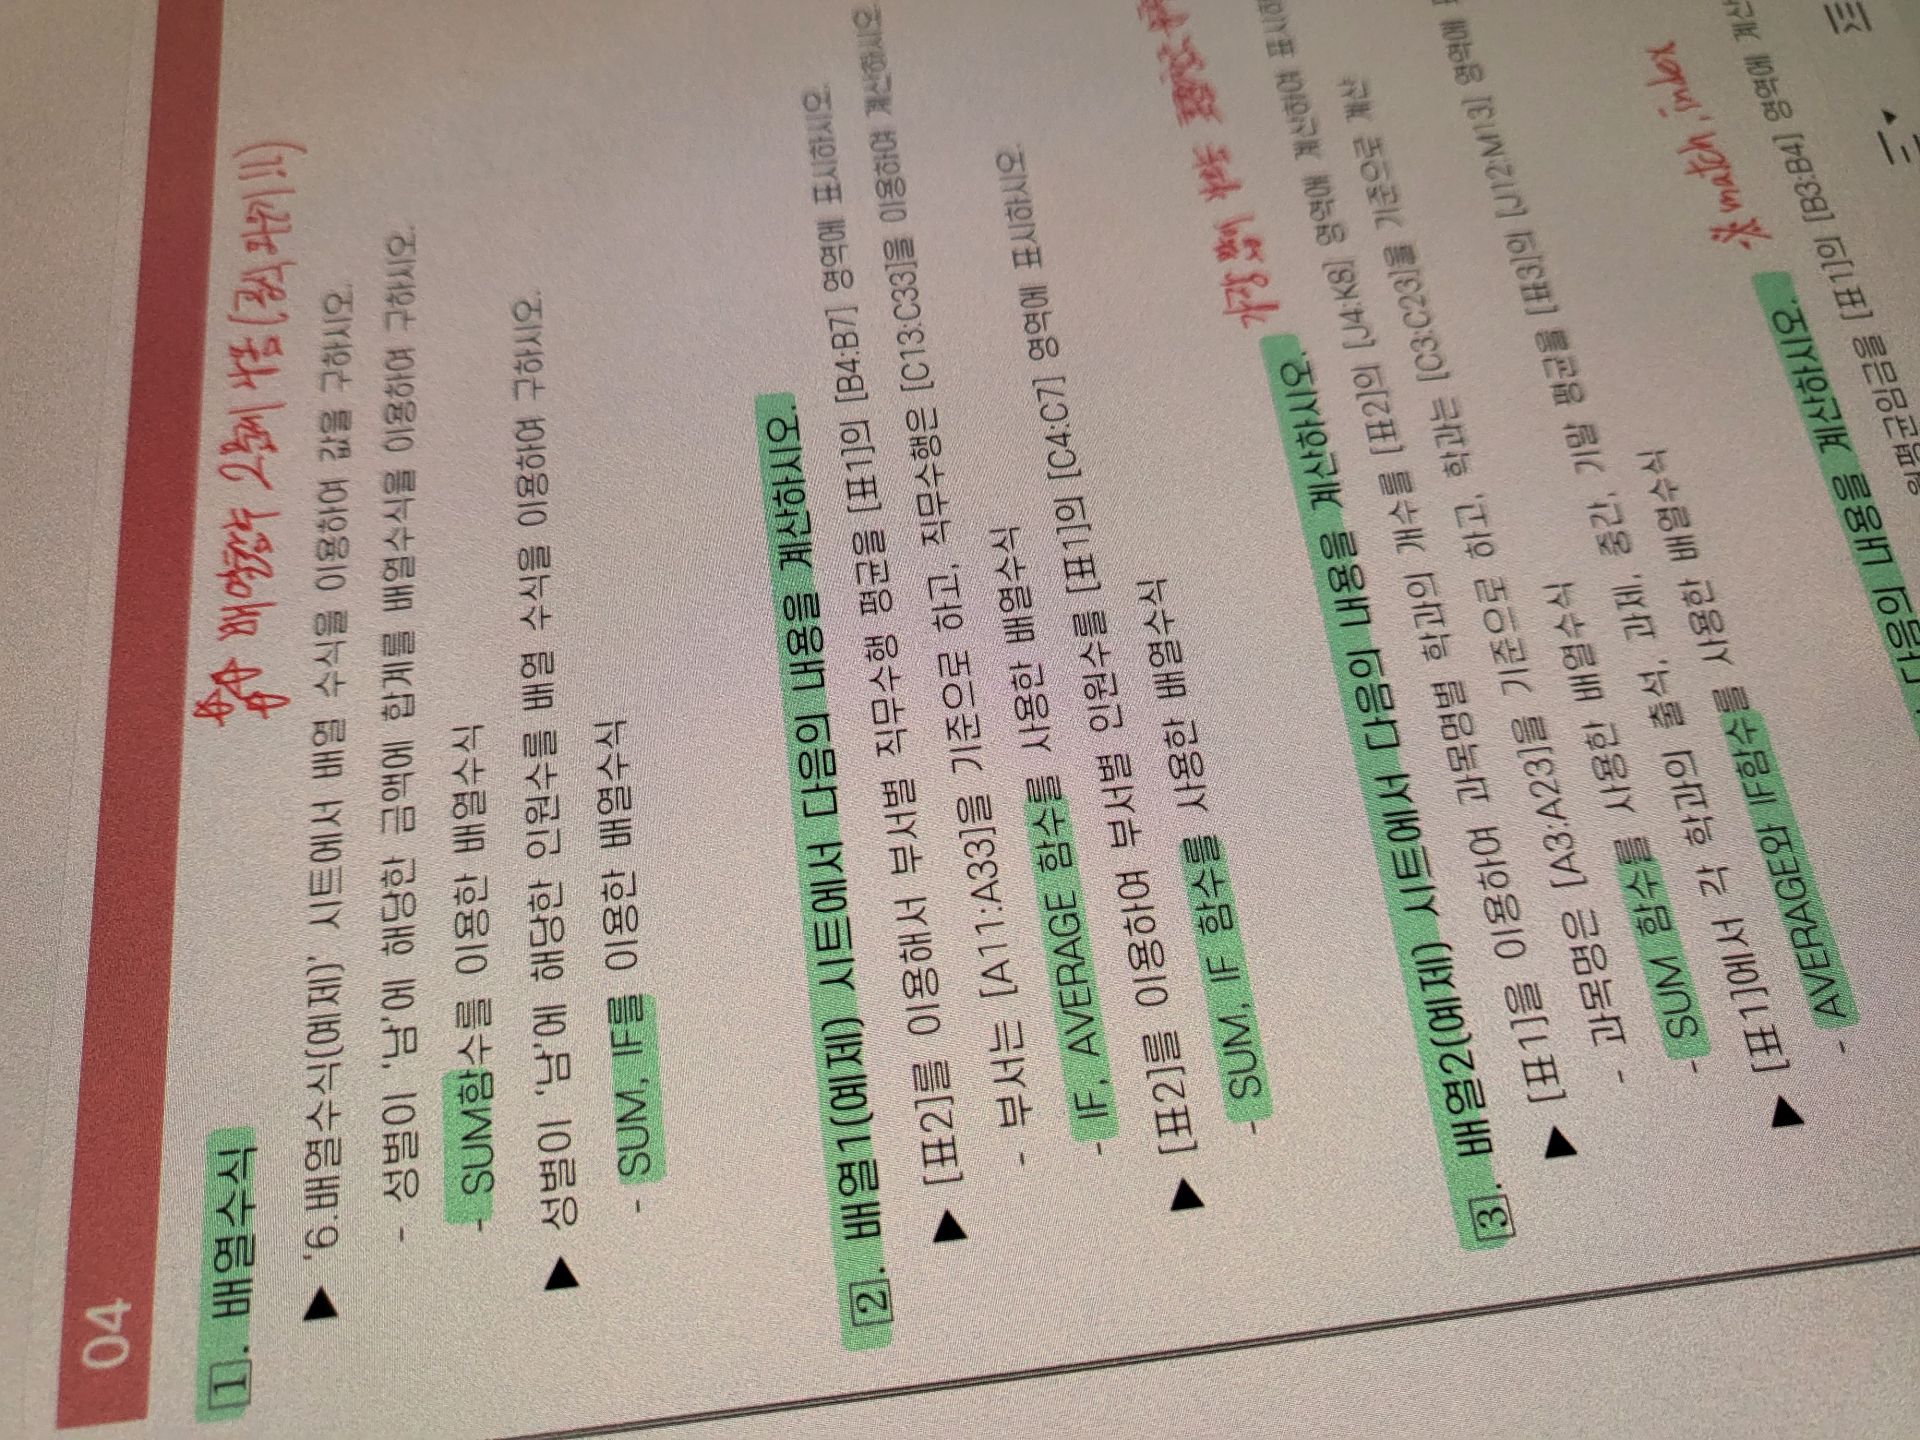 04
1. 배열수식
배열함수 2문제 나옴
▶ '6.배열수식(예제)' 시트에서 배열 수식을 이용하여 값을 구하시오.
- 성별이 '남'에 해당한 금액에 합계를 배열수식을 이용하여 구하시오.
- SUM함수를 이용한 배열수식
▶ 성별이 '남'에 해당한 인원수를 배열 수식을 이용하여 구하시오.
- SUM, IF를 이용한 배열수식
2. 배열1(예제) 시트에서 다음의 내용을 계산하시오.
▶ [표2]를 이용해서 부서별 직무수행 평균을 [표1]의 [B4:B7] 영역에 표시하시오.
- 부서는 [A11:A33]을 기준으로 하고, 직무수행은 [C13:C33]을 이용하여 계산하시오.
- IF, AVERAGE 함수를 사용한 배열수식
▶ [표2]를 이용하여 부서별 인원수를 [표1]의 [C4:C7] 영역에 표시하시오.
- SUM, IF 함수를 사용한 배열수식
3. 배열2(예제) 시트에서 다음의 내용을 계산하시오.
가장 많이 나옴
▶ [표1]을 이용하여 과목명별 학과의 개수를 [표2]의 [J4:K8] 영역에 계산하여 표시하
- 과목명은 [A3:A23]을 기준으로 하고, 학과는 [C3:C23]을 기준으로 계산
- SUM 함수를 사용한 배열수식
▶ [표1]에서 각 학과의 출석, 과제, 중간, 기말 평균을 [표3]의 [J12:M13] 영역에
- AVERAGE와 IF함수를 사용한 배열수식
다음의 내용을 계산하시오.
※ match, index
월평균임금을 [표1]의 [B3:B4] 영역에 계산